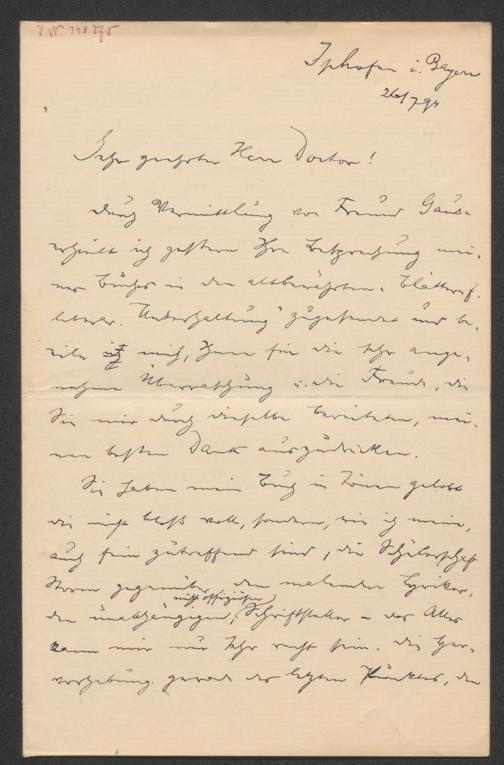 J.N. 149.275
Iphofen i. Bayern
26/7 94
Sehr geehrter Herr Doctor!
Durch Vermittlung von Freund
erhielt ich gestern Ihre Besprechung mei-
nes Buches in den altbewährten „Blättern f.
literar. Unterhaltung" zugesendet und be-
eile mich, Ihnen für die sehr ange-
nehme Überraschung u. die Freude, die
Sie mir durch dieselbe bereiteten, mei-
nen besten Dank auszudrücken.
Sie haben mein Buch in Tönen gelobt
die nicht bloß voll, sondern, wie ich meine,
auch fein zutreffend sind; die Schülerschaft
Storm gegenüber, den malenden Lyriker,
nicht offiziösen
den unabhängigen, Schriftsteller – das Alles
kann mir nur sehr recht sein. Die Her-
vorhebung gerade des letzten Punktes, den